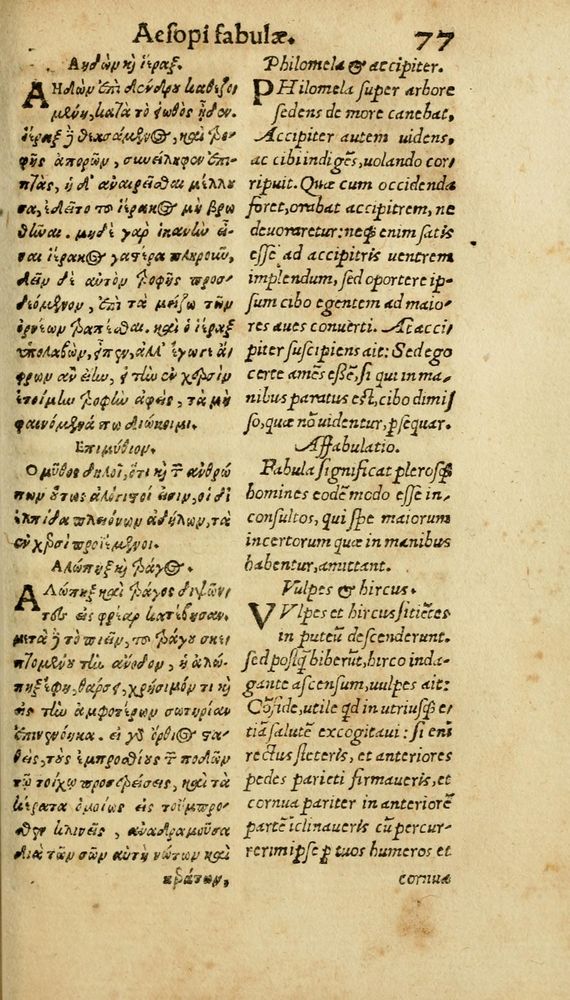 Aesopi fabulæ. 77
Ἀηδὼν καὶ ἱέραξ.
Ἀηδὼν ἐπὶ δένδρου καθεζο
μένη, κατὰ τὸ ἔωθος ᾖδεν.
ἱέραξ δὲ θεασάμενος, καὶ τρο-
φῆς ἀπορῶν, συνείληφεν ἐπι-
πτὰς, ἡ δ' ἀναιρεῖσθαι μέλλου
σα, ἐδεῖτο τοῦ ἱέρακος μὴ βρω
θῆναι. μηδὲ γὰρ ἱκανὴν εἶ-
ναι ἱέρακος γαστέρα πληροῦν,
δεῖν δὲ αὐτὸν τροφῆς προσ-
δεόμενον, ἐπὶ τὰ μείζω τῶν
ὀρνέων τραπέσθαι. καὶ ὁ ἱέραξ
ὑπολαβὼν, εἶπεν, ἀλλ' ἔγωγε ἄ
φρων ἂν εἴην, εἰ τὴν ἐν χερσὶν
ἑτοίμην τροφὴν ἀφεὶς, τὰ μὴ
φαινόμενά πω διώκοιμι.
Ἐπιμύθιον.
Ὁ μῦθος δηλοῖ, ὅτι καὶ τῶν ἀνθρώ
πων οὕτως ἀλόγιστοί εἰσιν, οἱ δι'
ἐλπίδα πλειόνων ἀδήλων, τὰ
ἐν χερσὶ προϊέμενοι.
Ἀλώπηξ καὶ τράγος.
Ἀλώπηξ καὶ τράγος διψῶν-
τες εἰς φρέαρ κατέβησαν.
μετὰ δὲ τὸ πιεῖν, τοῦ τράγου σκε
πτομένου τὴν ἄνοδον, ἡ ἀλώ-
πηξ ἔφη, θάρσει, χρήσιμόν τι καὶ
εἰς τὴν ἀμφοτέρων σωτηρίαν
ἐπινενόηκα. εἰ γὰρ ὄρθιος στα-
θεὶς, τοὺς ἐμπροσθίους τῶν ποδῶν
τῷ τοίχῳ προσερείσεις, καὶ τὰ
κέρατα ὁμοίως εἰς τοὔμπρο-
σθεν κλινεῖς, ἀναδραμοῦσα
διὰ τῶν σῶν αὐτὴ νώτων καὶ
κεράτων,
Philomela & accipiter.
PHilomela super arbore
sedens de more canebat,
Accipiter autem uidens,
ac cibi indigẽs, uolando cor
ripuit. Quæ cum occidenda
foret, orabat accipitrem, ne
deuoraretur: neq; enim satis
esse ad accipitris uentrem
implendum, sed oportere ip-
sum cibo egentem ad maio-
res aues conuerti. At acci-
piter suscipiens ait: Sed ego
certe amẽs essẽ, si qui in ma-
nibus paratus est, cibo dimis
so, quæ nõ uidentur, ꝑsequar.
Affabulatio.
Fabula significat plerosq;
homines eodẽ modo esse in-
consultos, qui spe maiorum
incertorum quæ in manibus
habentur, amittant.
Vulpes & hircus.
VVlpes et hircus sitiẽtes
in puteũ descenderunt.
sed postq̃ biberũt, hirco inda-
gante ascensum, uulpes ait:
Cõfide, utile qd in utriusq; e-
tiã salutẽ excogitaui: si eñ
rectus steteris, et anteriores
pedes parieti firmaueris, et
cornua pariter in anteriorẽ
partẽ ĩclinaueris cũ percur-
rerim ipse ꝑ tuos humeros et
cornua